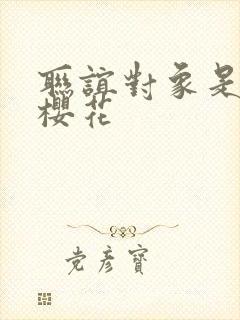 聯誼對象是
櫻花
党彥寶